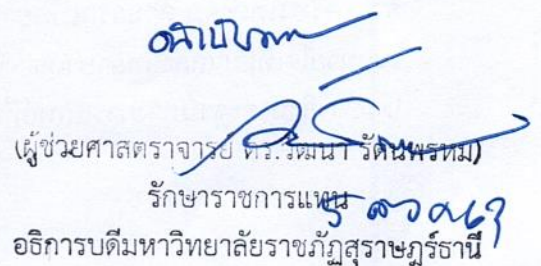 (ผู้ช่วยศาสตราจารย์ ดร.วัฒนา รัตนพรหม)
รักษาราชการแทน
อธิการบดีมหาวิทยาลัยราชภัฏสุราษฎร์ธานี